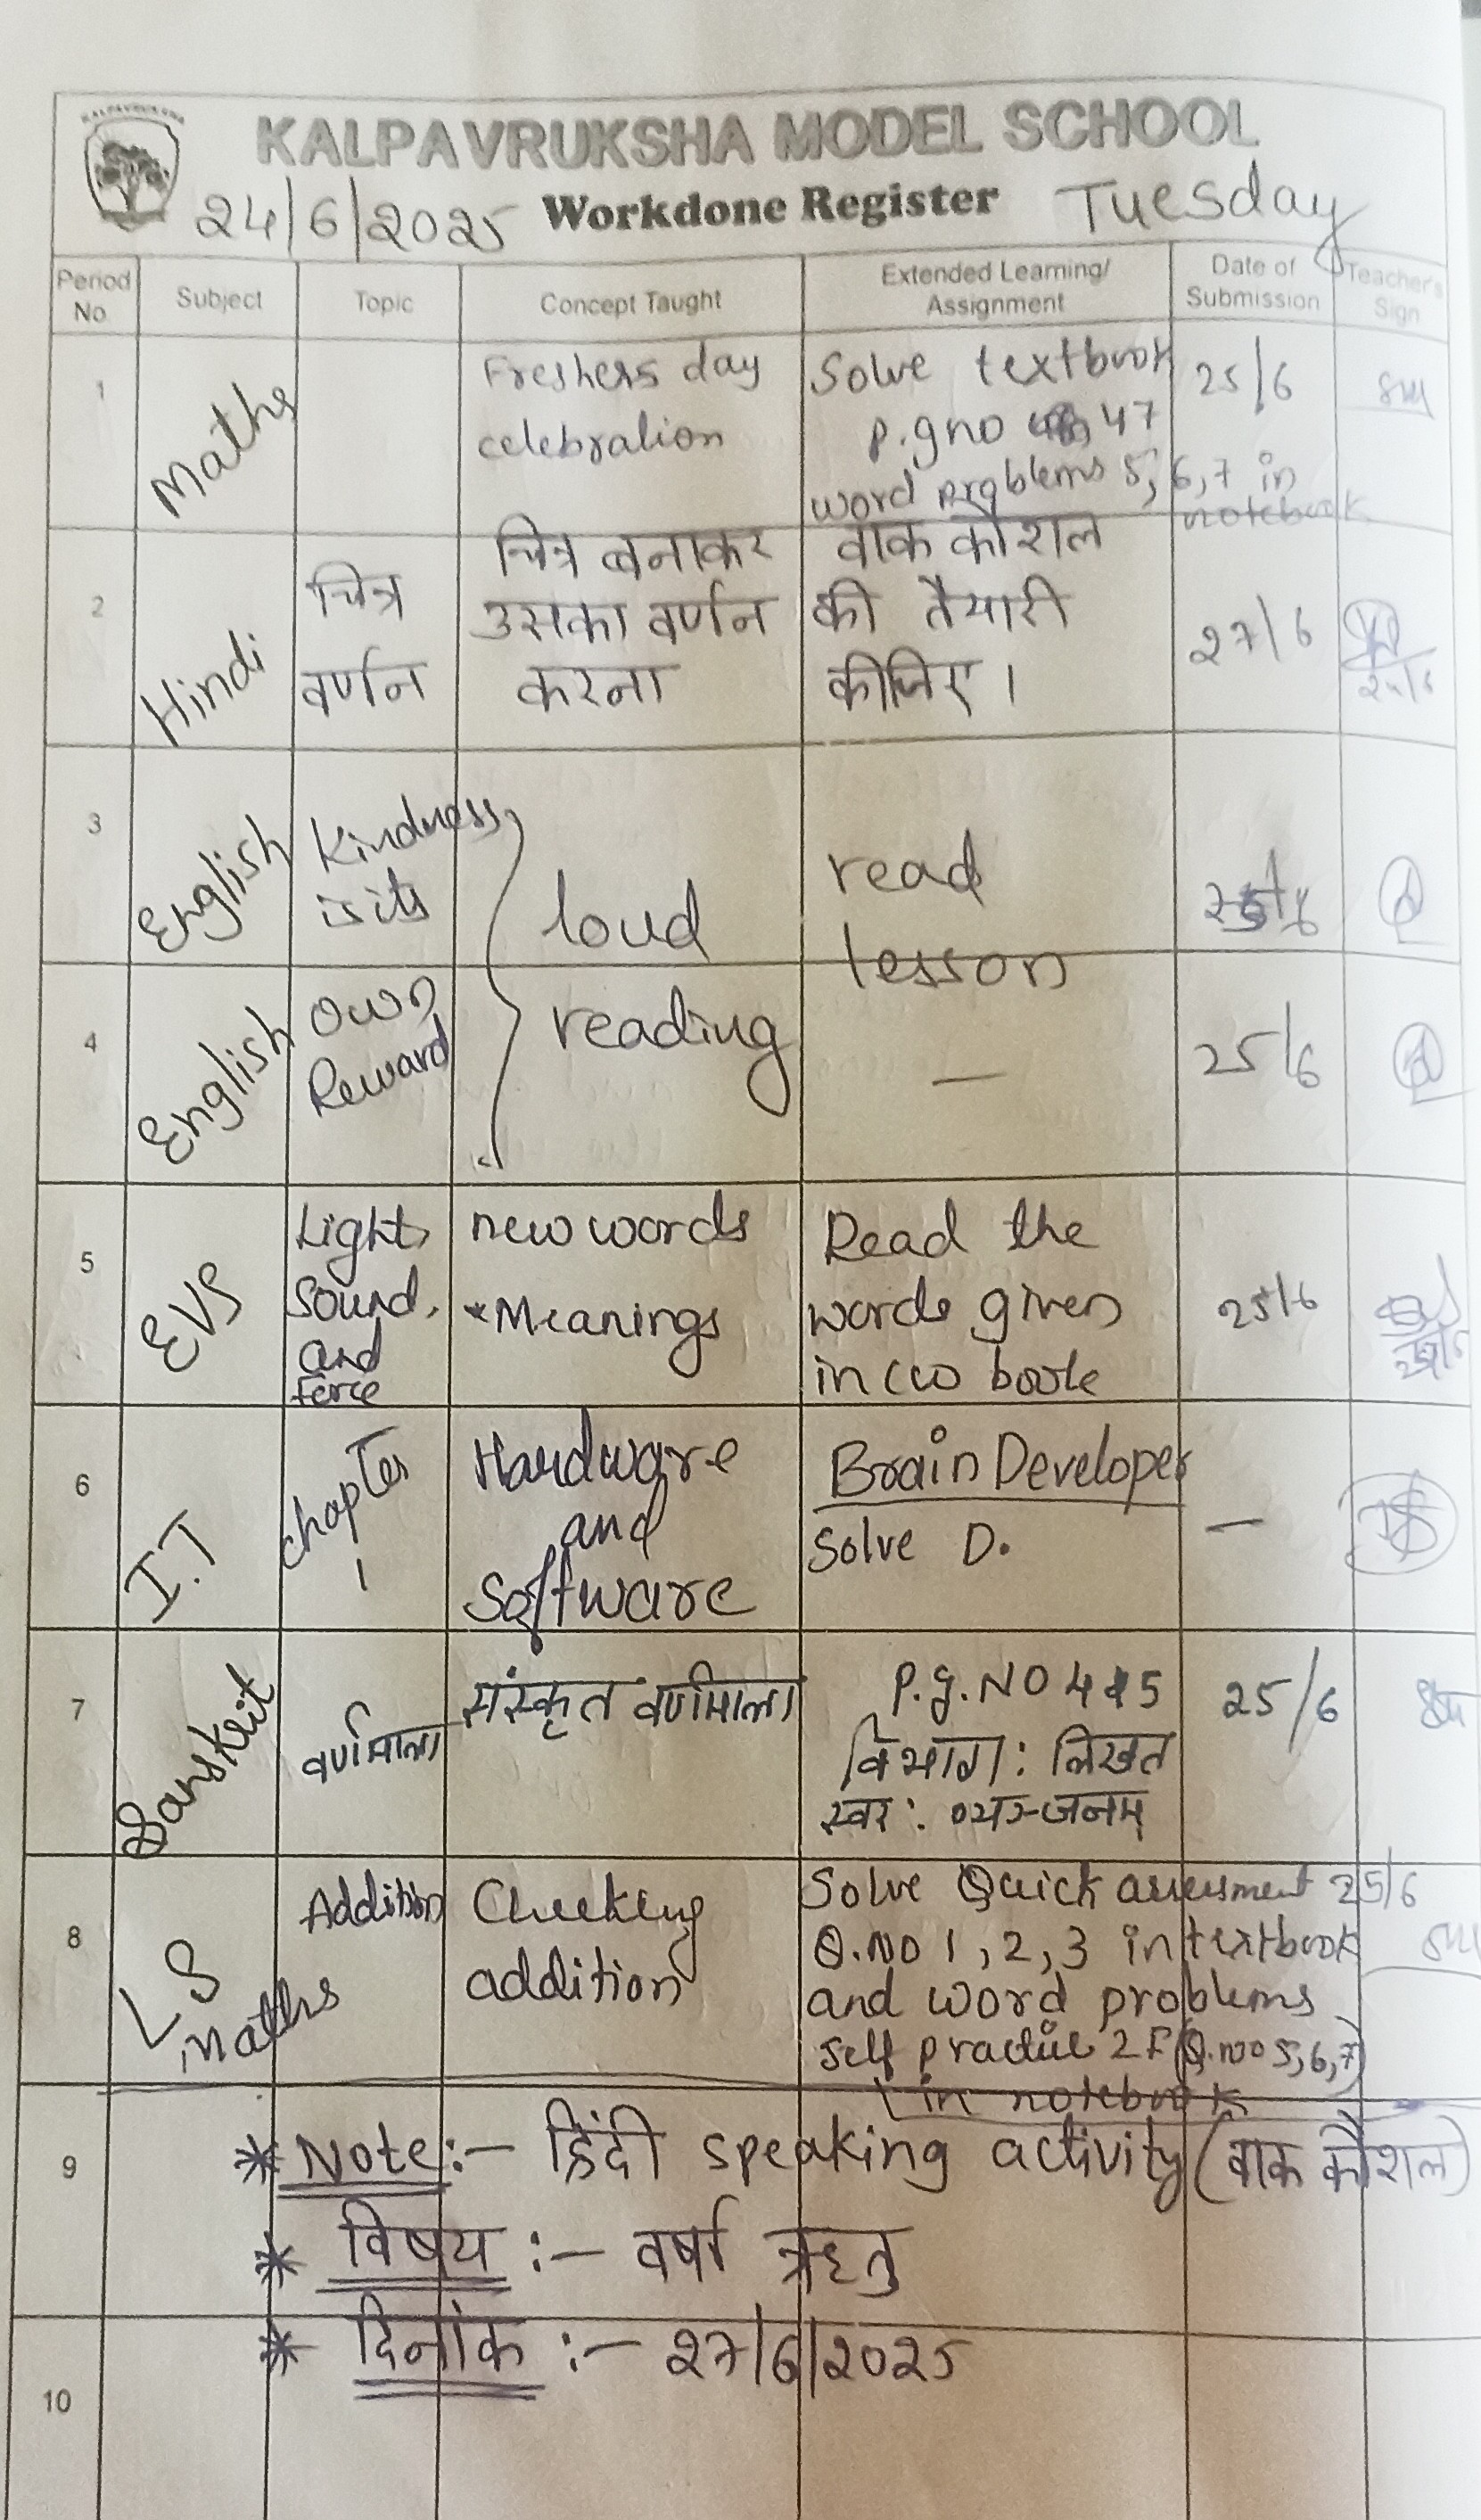 KALPAVRUKSHA
KALPAVRUKSHA MODEL SCHOOL
24/6/2025 Workdone Register Tuesday
Period No. Subject Topic Concept Taught Extended Learning/ Assignment Date of Submission Teacher's Sign
1 Maths
Freshers day
celebration
Solve textbook
p.gno 47
word problems 5, 6, 7 in
notebook
25/6
2 Hindi
चित्र
वर्णन
चित्र बनाकर
उसका वर्णन
करना
वाक कौशल
की तैयारी
कीजिए।
27/6
3 English
Kindness
is its
loud
read
lesson
4 English
Own
Reward
reading
—
25/6
5 EVS
Light,
Sound,
and
Force
new words
*Meanings
Read the
words given
in cw book
25/6
6 I.T
chapter
1
Hardware
and
Software
Brain Developer
Solve D.
—
7 Sanskrit
वर्णमाला
संस्कृत वर्णमाला
P.g.No 4 &5
विभाग: लिखत
स्वर: व्यञ्जनम्
25/6
8 LS
Maths
Addition
Checking
addition
Solve Quick assessment 25/6
Q.no 1, 2, 3 in textbook
and word problems
self practice 2F (Q.no 5, 6, 7)
in notebook
9 * Note:- हिंदी speaking activity (वाक कौशल)
* विषय :- वर्षा ऋतु
* दिनांक :- 27/6/2025
10